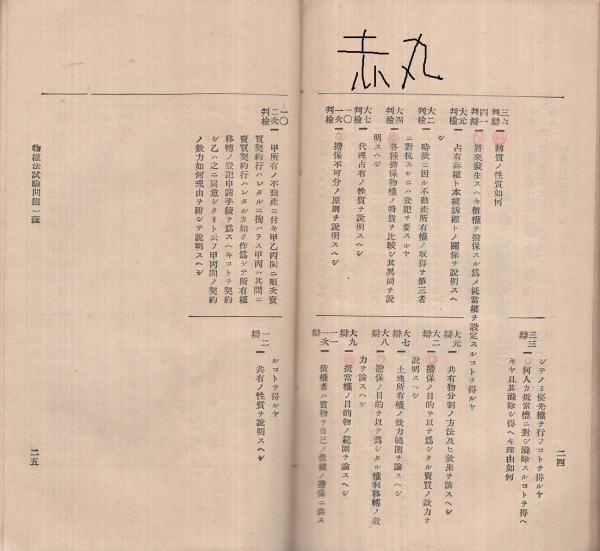 赤丸
二四
シテノミ優先權ヲ行フコトヲ得ルヤ
三三
辯
一 何人カ抵當權ニ對シ滌除スルコトヲ得ヘ
キヤ且其滌除シ得ヘキ理由如何
三六
判辯
一 轉質ノ性質如何
四一
判辯
一 將來發生スヘキ債權ヲ擔保スル爲メ抵當權ヲ設定スルコトヲ得ルヤ
大元
判檢
一 占有訴權ト本權訴權トノ關係ヲ説明スヘ
シ
大二
判檢
一 時效ニ因ル不動産所有權ノ取得ヲ第三者
ニ對抗スルニハ登記ヲ要スルヤ
大四
判檢
一 各種擔保物權ノ特質ヲ比較シ其異同ヲ説
明スヘシ
大七
判檢
一 代理占有ノ性質ヲ説明スヘシ
一〇
一次
判檢
一 擔保不可分ノ原則ヲ説明スヘシ
大元
辯
一 共有物分割ノ方法及ヒ效果ヲ論スヘシ
大二
辯
一 擔保ノ目的ヲ以テ爲シタル賣買ノ效力ヲ
説明スヘシ
大七
辯
一 土地所有權ノ效力範圍ヲ論スヘシ
大八
辯
一 擔保ノ目的ヲ以テ爲シタル權利移轉ノ效
力ヲ論スヘシ
大九
辯
一 抵當權ノ目的物ノ範圍ヲ論スヘシ
一一
一次
辯
一 債權者ハ質物ヲ自己ノ債權ノ擔保ニ供ス
一〇
二次
判檢
一 甲所有ノ不動産ニ付キ甲乙丙間ニ順次賣
買契約行ハレタルニ拘ハラス甲丙ハ其間ニ
賣買契約行ハレタルカ如ク作爲シテ所有權
移轉ノ登記申請手續ヲ爲スヘキコトヲ契約
シ乙ハ之ニ同意シタリト云フ甲丙間ノ契約
ノ效力如何理由ヲ附シテ説明スヘシ
ルコトヲ得ルヤ
一二
辯
一 共有ノ性質ヲ説明スヘシ
物權法試驗問題一斑
二五